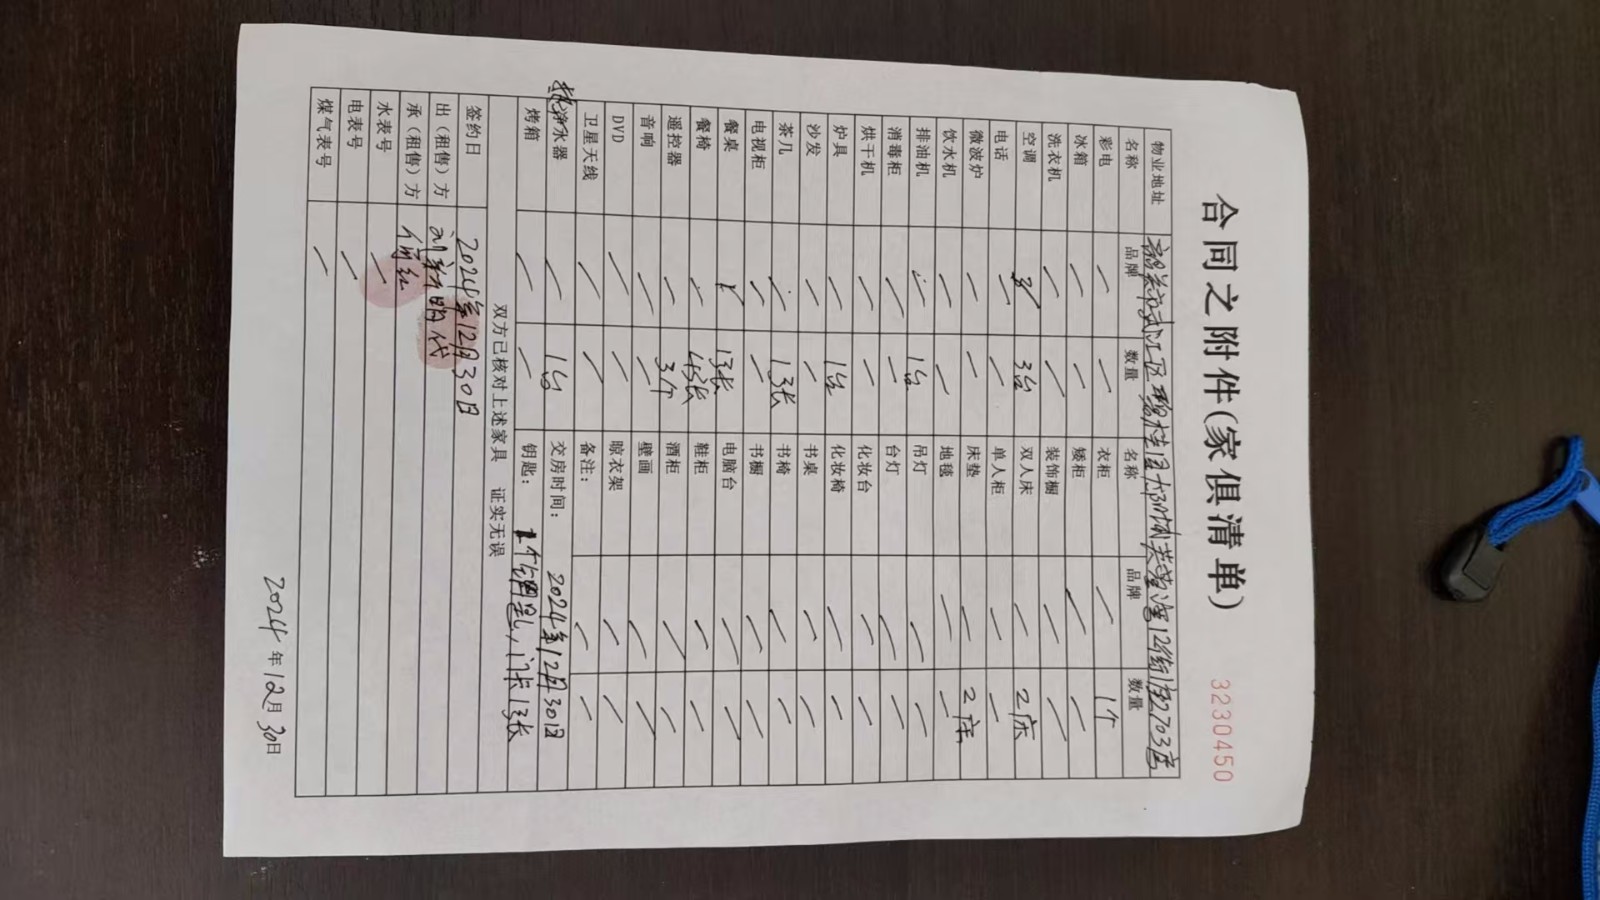 合同之附件(家俱清单)
3230450
物业地址 韶关市武江区碧桂园太阳城芙蓉湾12街1座2703房
名称 品牌 数量 名称 品牌 数量
彩电 / / 衣柜 / 1个
冰箱 / / 矮柜 / /
洗衣机 / / 装饰橱 / /
空调 3台 双人床 / 2床
电话 / / 单人柜 / /
微波炉 / / 床垫 / 2床
饮水机 / / 地毯 / /
排油机 / 1台 吊灯 / /
消毒柜 / / 台灯 / /
烘干机 / / 化妆台 / /
炉具 / 1台 化妆椅 / /
沙发 / / 书桌 / /
茶几 / 1张 书椅 / /
电视柜 / / 书橱 / /
餐桌 1张 电脑台 / /
餐椅 / 4张 鞋柜 / /
遥控器 / 3个 酒柜 / /
音响 / / 壁画 / /
DVD / / 晾衣架 / /
卫星天线 / / 备注: / /
热水器 / 1台 交房时间: 2024年12月30日
烤箱 / / 钥匙: 1个钥匙,门卡1张
双方已核对上述家具 证实无误
签约日 2024年12月30日
出(租售)方 代
承(租售)方
水表号 /
电表号 /
煤气表号 /
2024年12月30日